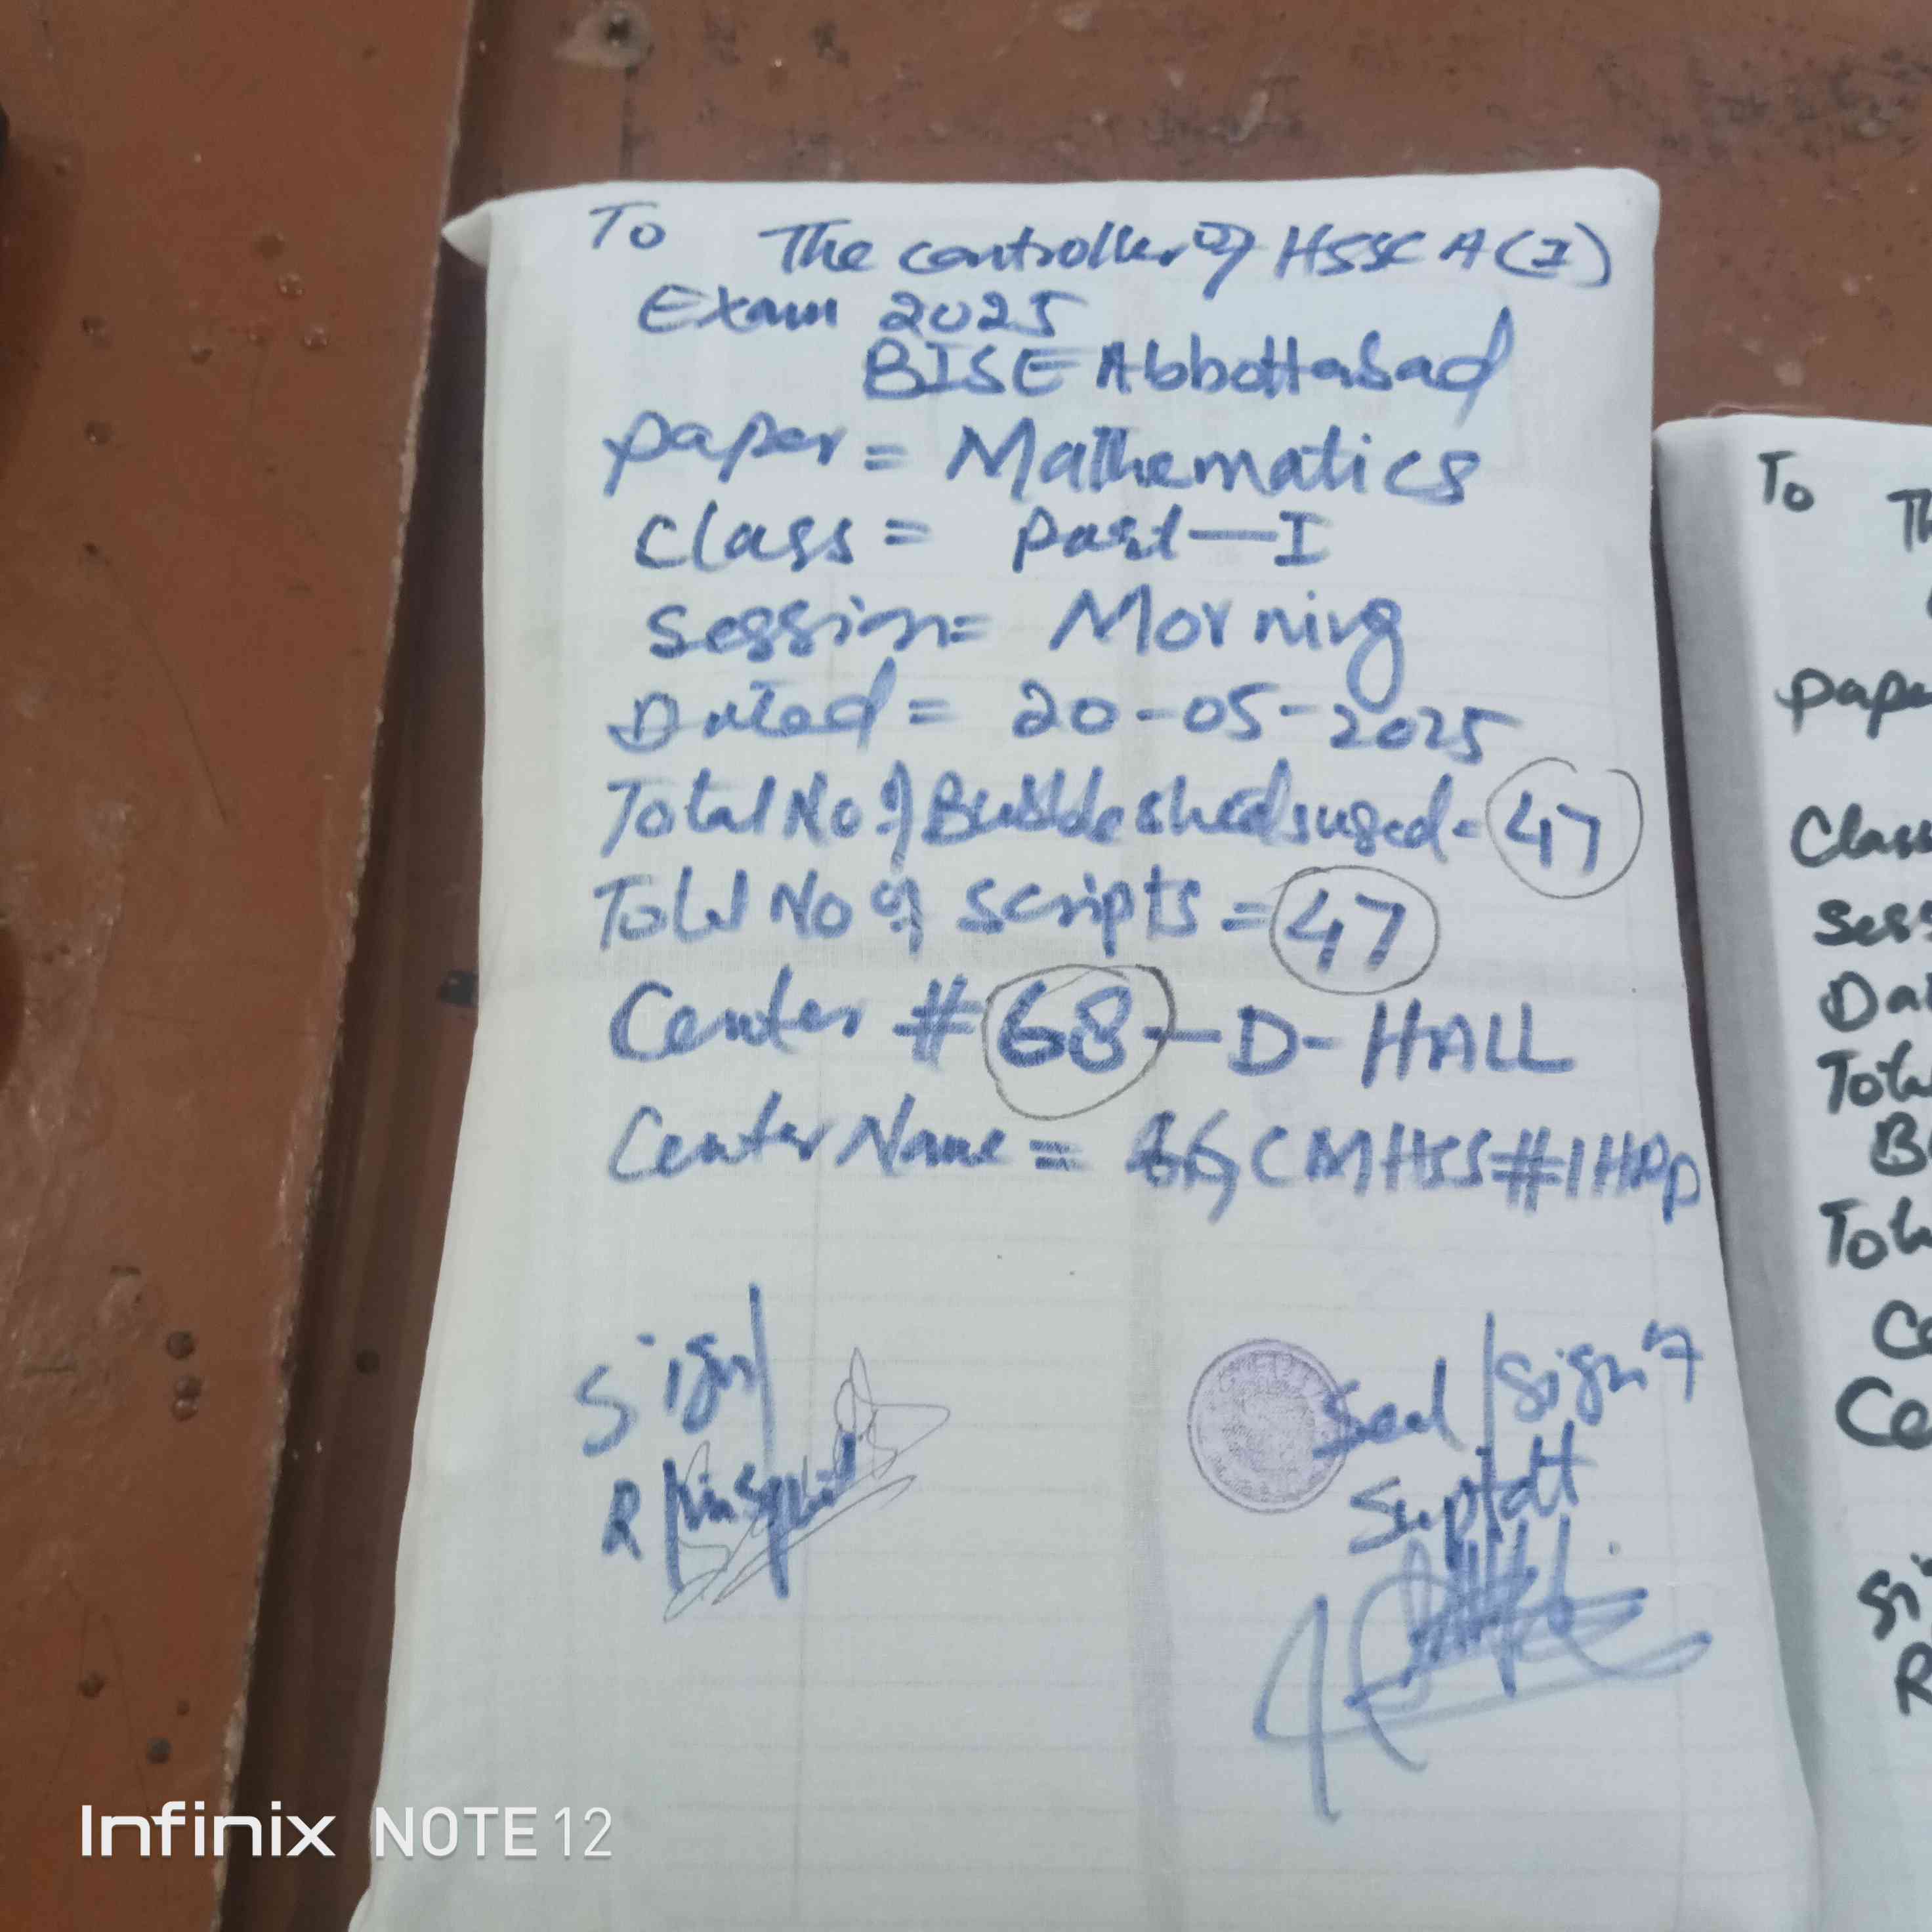 To The controller of HSSC A(I)
Exam 2025
BISE Abbottabad
paper = Mathematics
class = Part—I
Session = Morning
Dated = 20-05-2025
Total No of Bubble sheets used = 47
Total No of scripts = 47
Center # 68 — D - HALL
Center Name = GCMHSS#1 HRP
Sign/
R/Inspect
Seal/Sign of
Suptdtt
To Th
pape
Class
Sess
Dat
Tota
B
Tota
Ce
Ce
Si
R
Infinix NOTE 12